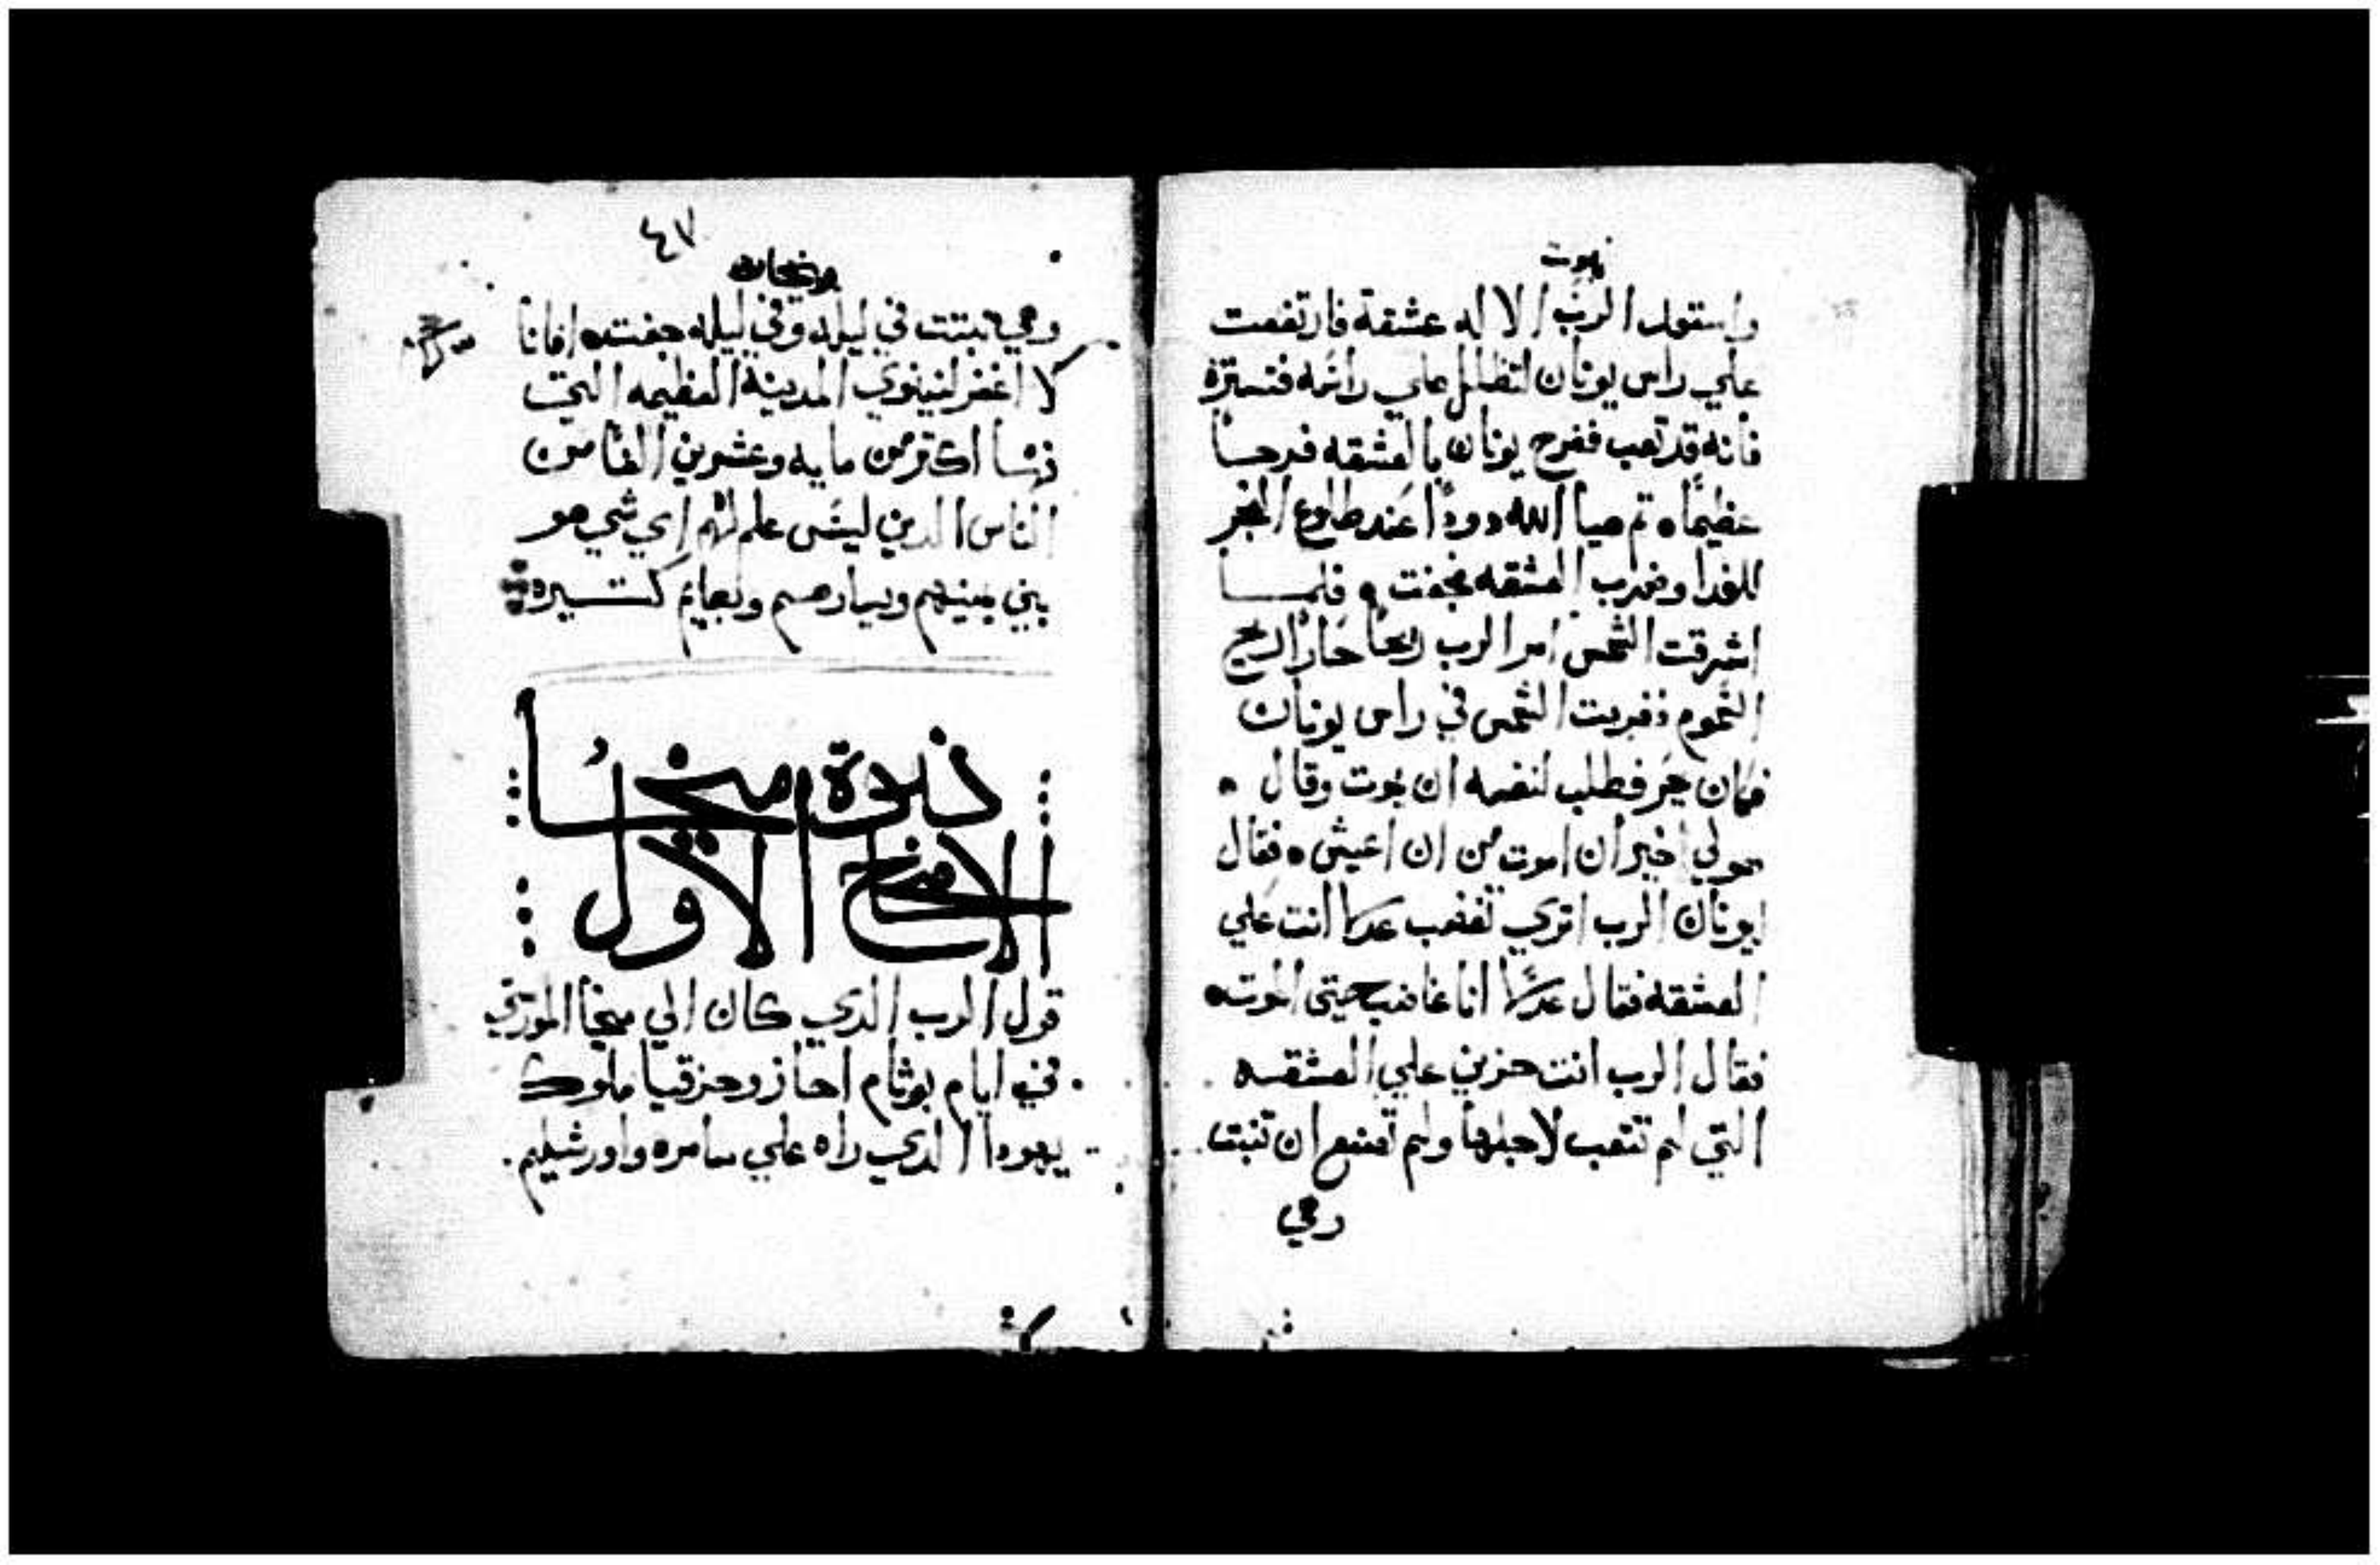 نبوت
واستولد الرب الاله عشقة فارتفعت
علي راس يونان لتظلل علي راسه فتستره
فانه قد تعب ففرح يونان بالعشقه فرحا
عظيما ثم هيا الله دودا عند طلوع الفجر
للغدا وضرب العشقه فجفت فلما
اشرقت الشمس امر الرب ريحا حار الريح
الشموم فضربت الشمس في راس يونان
فكان حر فطلب لنفسه ان يموت وقال
هو لي اخير ان اموت من ان اعيش فقال
ليونان الرب اتري تغضب عدلا انت علي
العشقه فقال عدلا انا غاضب حتى الموت
فقال الرب انت حزين علي العشقه
التي لم تتعب لاجلها ولم تصنع ان تنبت
وهي
٤٧
يونان
وهي نبتت في ليله وفي ليله جفت افانا
لا اغفر لنينوي المدينة العظيمه التي
فيها اكتر من مايه وعشرين الفا من
الناس الدين ليس علم لهم اي شي هو
بين يمينهم ويسارهم وبهايم كتيره
نبوة ميخا
الاصحاح الاول
قول الرب الدي كان الي ميخا المورتي
في ايام يوثام احاز وحزقيا ملوك
يهودا الدي راه علي سامره واورشليم